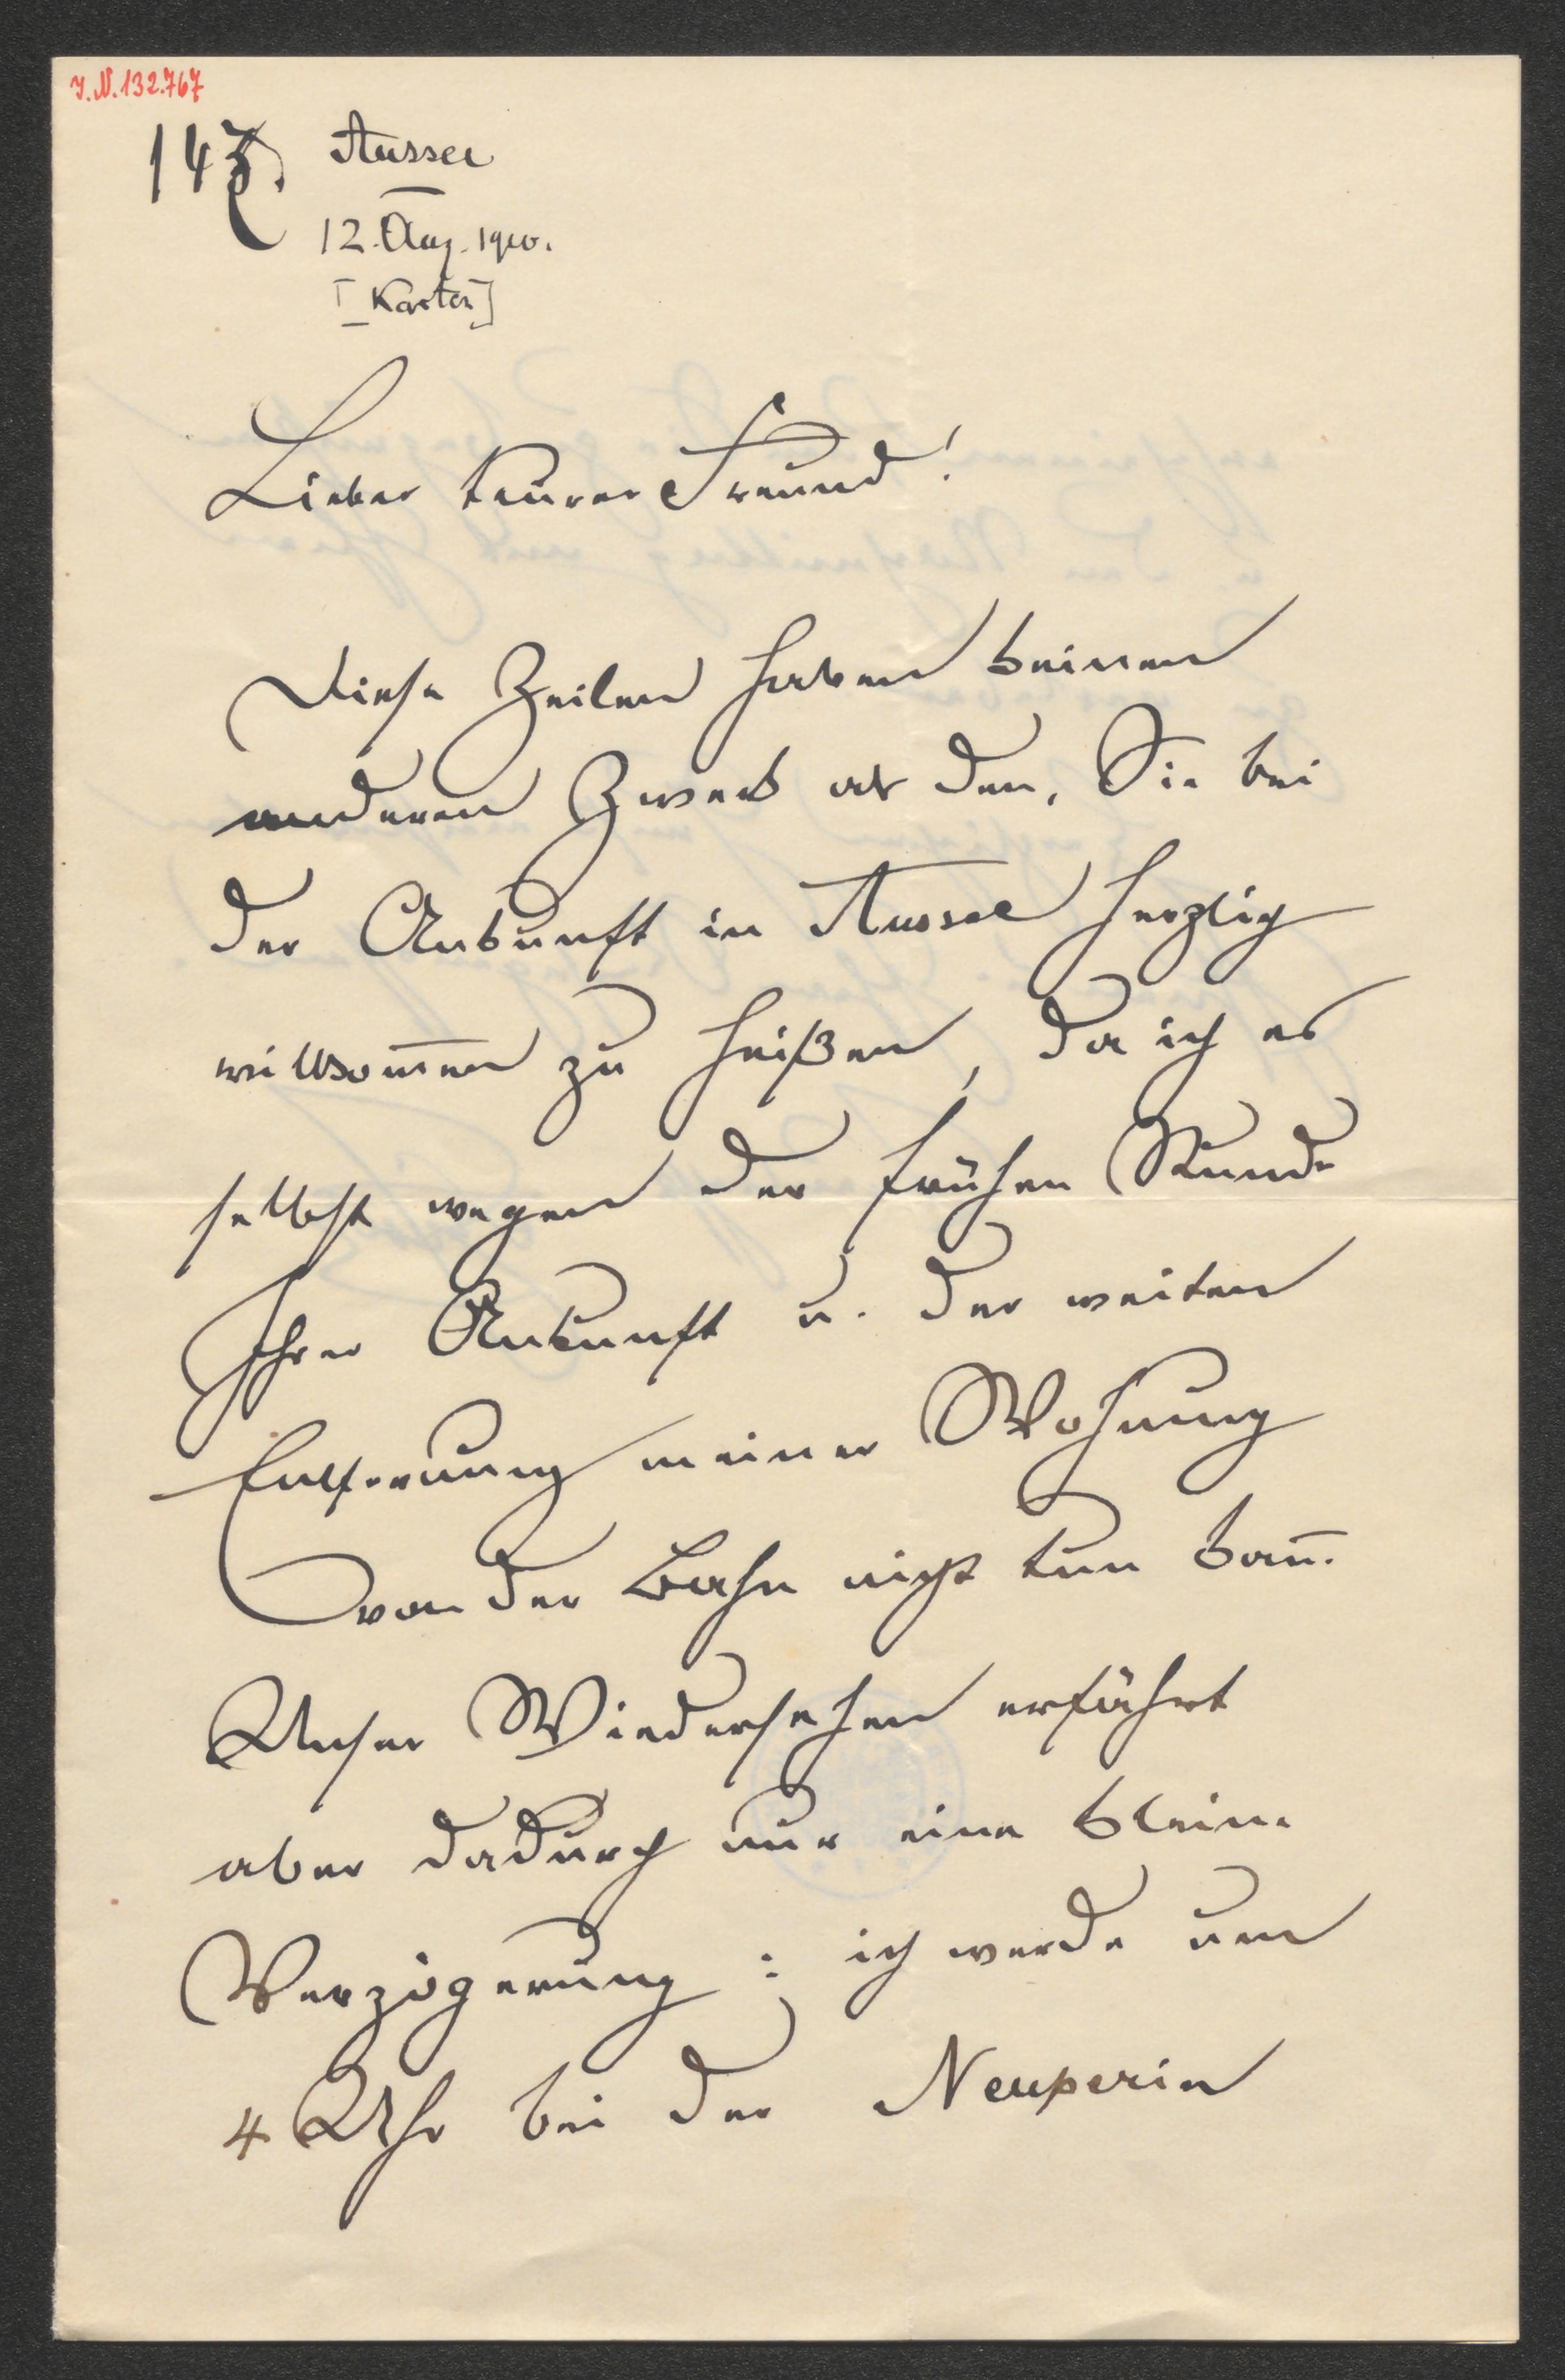 J.N. 132.767
147. Aussee
12. Aug. 1910.
[Karton]
Lieber teurer Freund!
Diese Zeilen haben keinen
anderen Zweck als den, Sie bei
der Ankunft in Aussee herzlich
willkom̅en zu heißen, da ich es
selbst wegen der frühen Stunde
Ihrer Ankunft u. der weiten
Entfernung meiner Wohnung
von der Bahn nicht tun kan̅.
Unser Wiedersehen erfährt
aber dadurch nur eine kleine
Verzögerung: ich werde um
4 Uhr bei der Neuperin